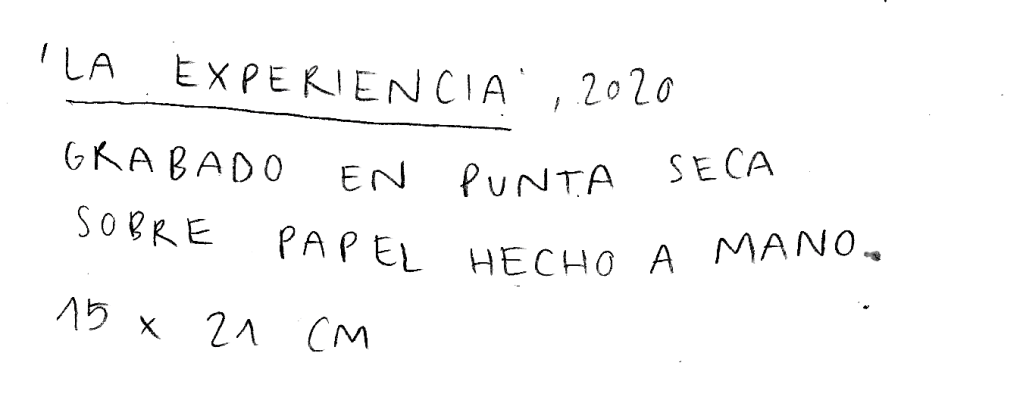 'LA EXPERIENCIA', 2020
GRABADO EN PUNTA SECA
SOBRE PAPEL HECHO A MANO.
15 x 21 CM